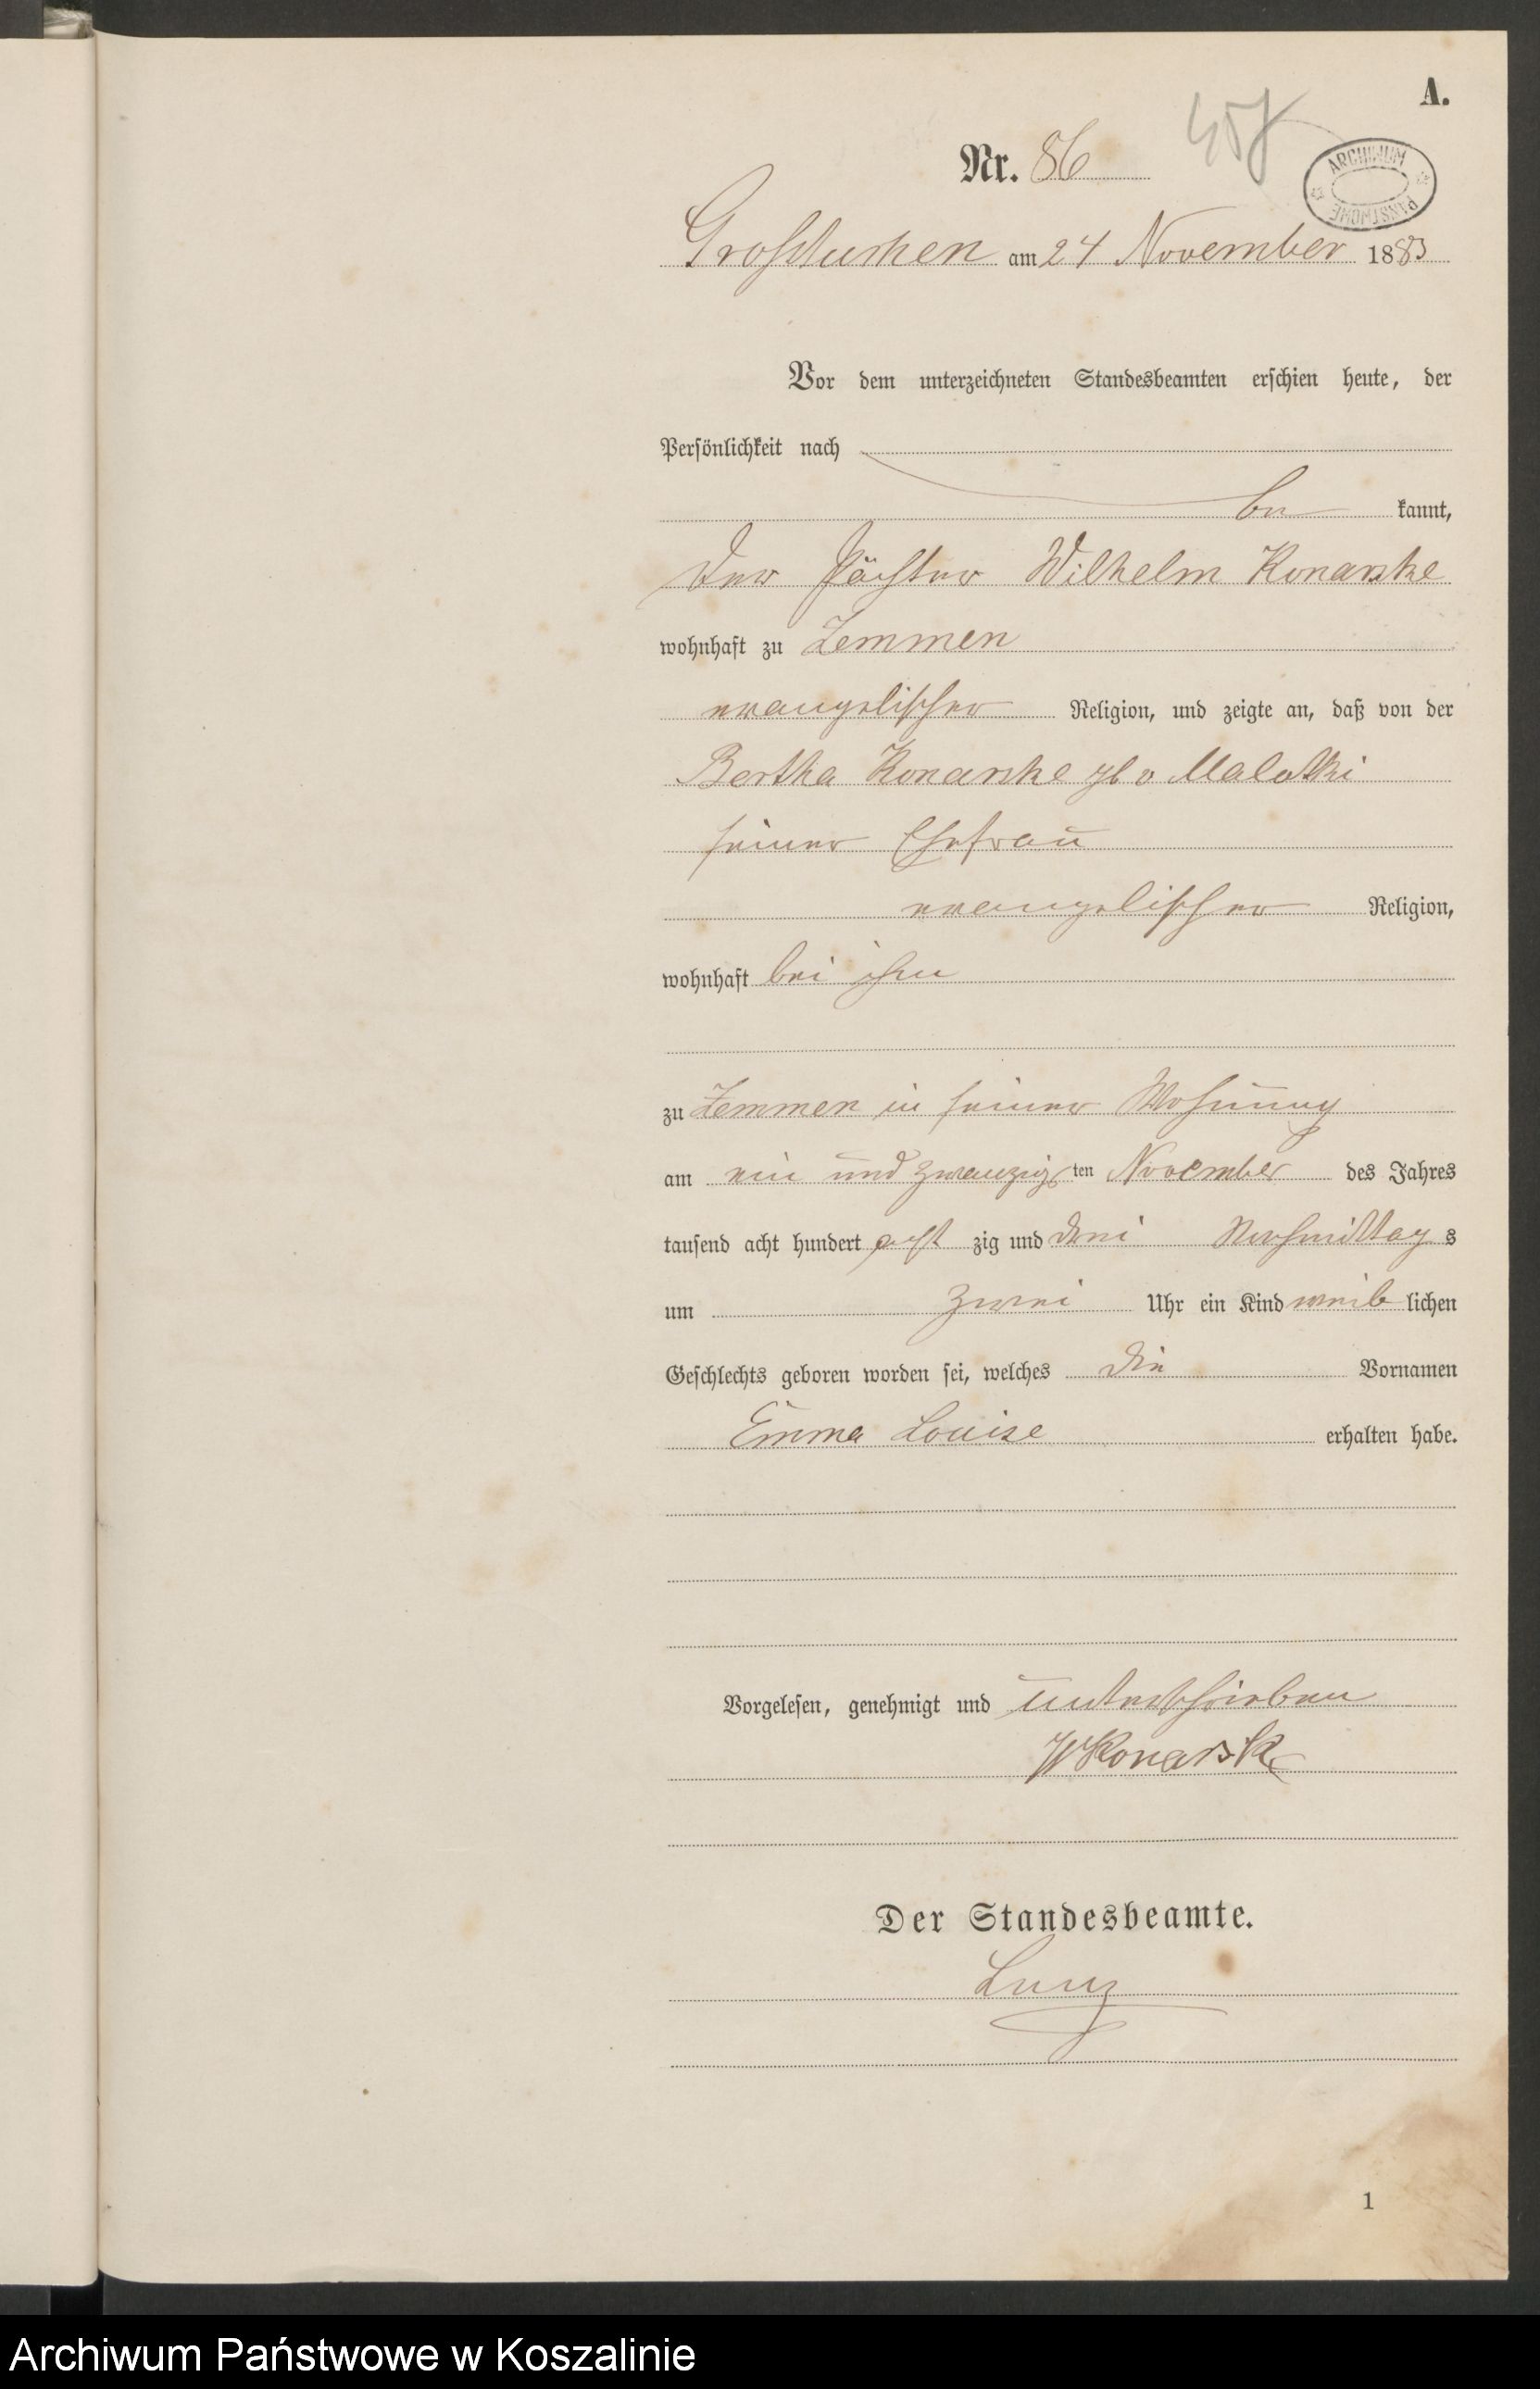 A.
Nr. 86
ARCHIWUM PAŃSTWOWE
Großtuchen am 24 November 1883
Vor dem unterzeichneten Standesbeamten erschien heute, der
Persönlichkeit nach
be kannt,
der Pächter Wilhelm Konarske
wohnhaft zu Zemmen
evangelischer Religion, und zeigte an, daß von der
Bertha Konarske gb v Malottki
seiner Ehefrau
evangelischer Religion,
wohnhaft bei ihm
zu Zemmen in seiner Wohnung
am ein und zwanzigsten November des Jahres
tausend acht hundert acht zig und drei Nachmittags
um zwei Uhr ein Kind weiblichen
Geschlechts geboren worden sei, welches die Vornamen
Emma Louise erhalten habe.
Vorgelesen, genehmigt und unterschrieben
W Konarske
Der Standesbeamte.
1
Archiwum Państwowe w Koszalinie